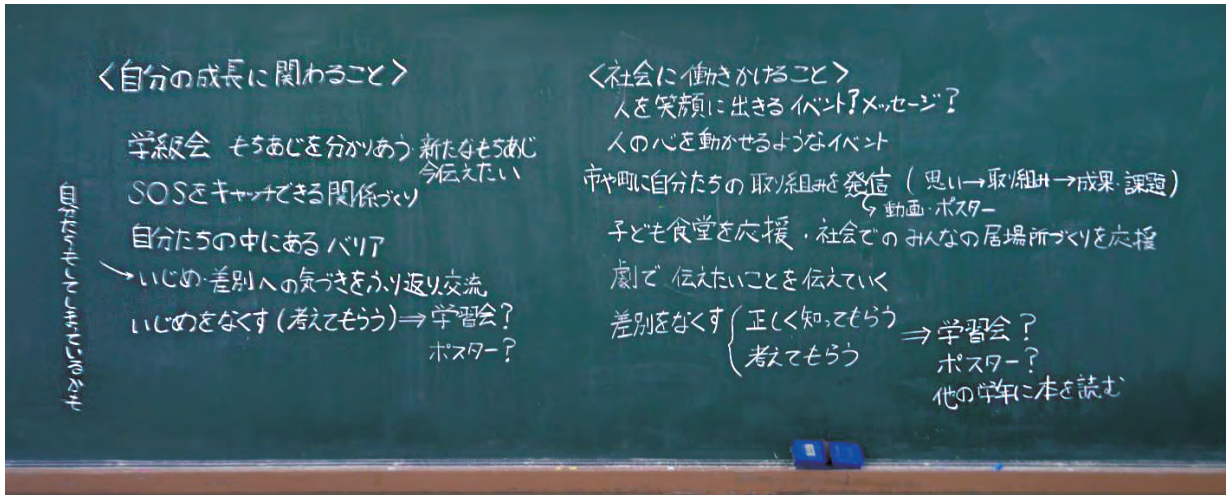 〈自分の成長に関わること〉
学級会 もちあじを分かりあう・新たなもちあじ
今伝えたい
SOSをキャッチできる関係づくり
自分たちの中にあるバリア
→いじめ・差別への気づきをふり返り、交流
いじめをなくす(考えてもらう)⇒学習会?
ポスター?
自分たちもしてしまっているかも
〈社会に働きかけること〉
人を笑顔に出きるイベント?メッセージ?
人の心を動かせるようなイベント
市や町に自分たちの取り組みを発信(思い→取り組み→成果・課題)
↳動画・ポスター
子ども食堂を応援・社会でのみんなの居場所づくりを応援
劇で伝えたいことを伝えていく
差別をなくす{正しく知ってもらう
考えてもらう
⇒学習会?
ポスター?
他の学年に本を読む